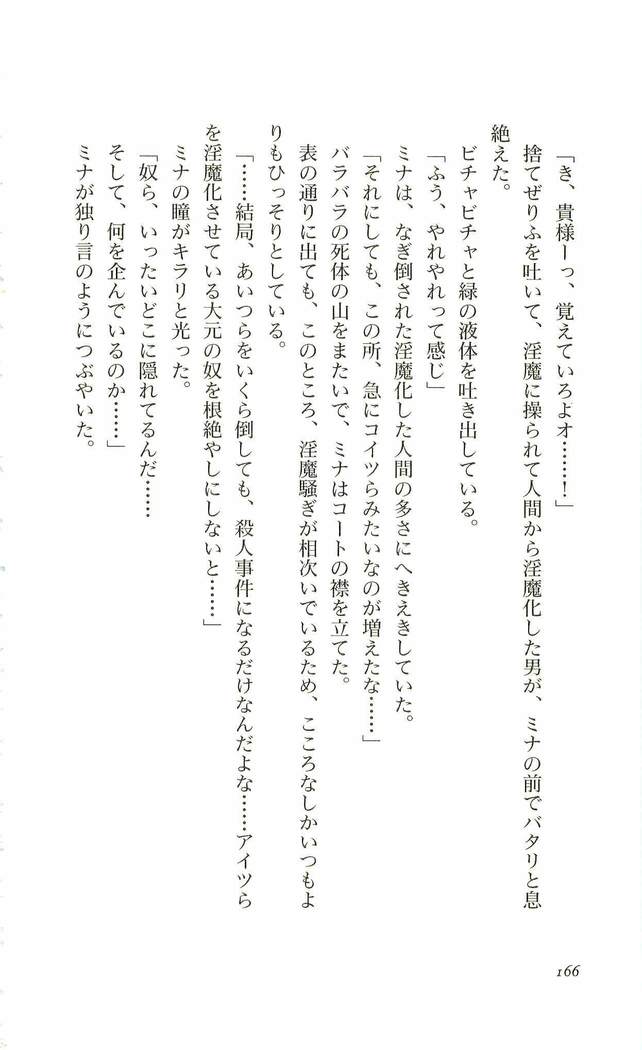 「き、貴様ーっ、覚えていろよオ……！」
捨てぜりふを吐いて、淫魔に操られて人間から淫魔化した男が、ミナの前でバタリと息
絶えた。
ビチャビチャと緑の液体を吐き出している。
「ふう、やれやれって感じ」
ミナは、なぎ倒された淫魔化した人間の多さにへきえきしていた。
「それにしても、この所、急にコイツらみたいなのが増えたな……」
バラバラの死体の山をまたいで、ミナはコートの襟を立てた。
表の通りに出ても、このところ、淫魔騒ぎが相次いでいるため、こころなしかいつもよ
りもひっそりとしている。
「……結局、あいつらをいくら倒しても、殺人事件になるだけなんだよな……アイツら
を淫魔化させている大元の奴を根絶やしにしないと……」
ミナの瞳がキラリと光った。
「奴ら、いったいどこに隠れてるんだ……
そして、何を企んでいるのか……」
ミナが独り言のようにつぶやいた。
166